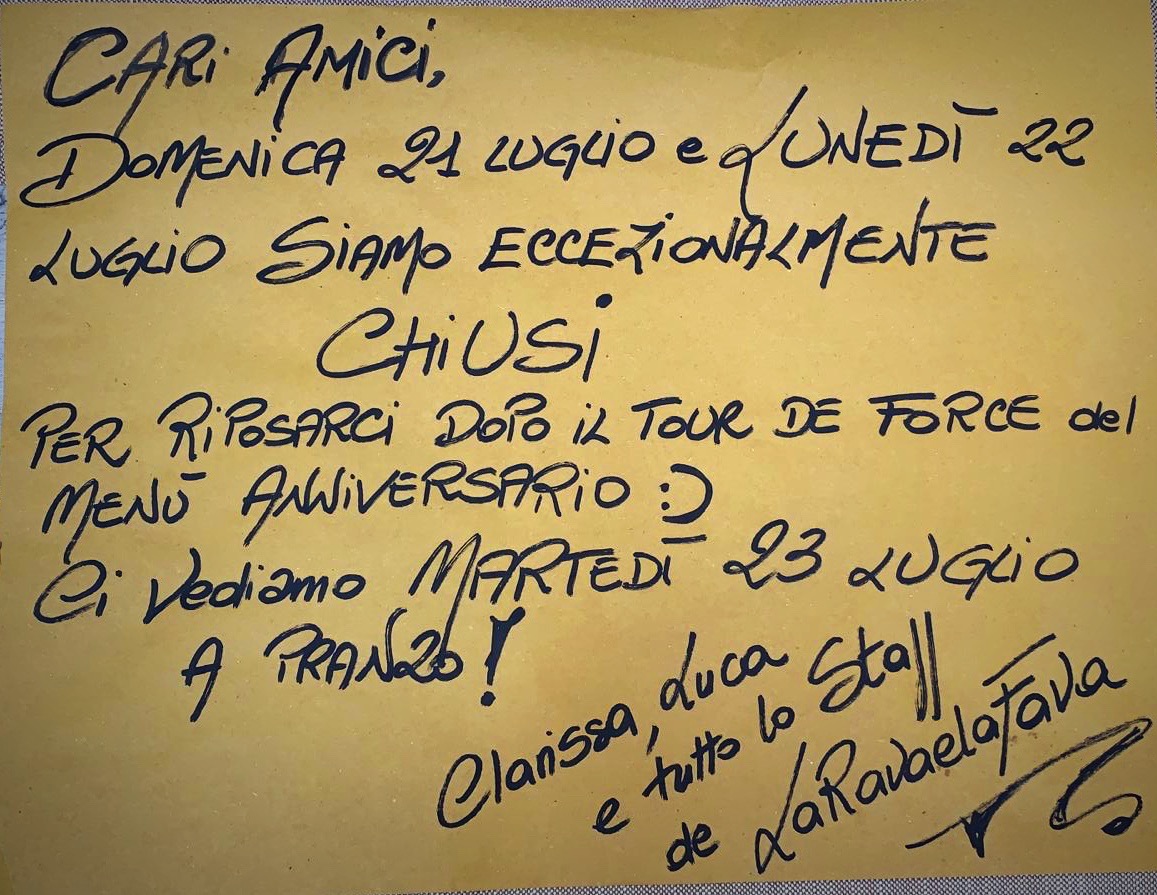 CARi AMiCi,
DOMENiCA 21 LUGLIO e LUNEDÌ 22
LUGLIO SiAMO ECCEZiONALMENTE
CHiUSi
PER RiPOSARCi DOPO iL TOUR DE FORCE del
MENÙ ANNiVERSARiO :)
Ci Vediamo MARTEDÌ 23 LUGLiO
A PRANZO!
Clarissa, Luca
e tutto lo Staff
de LaRavaelaFava